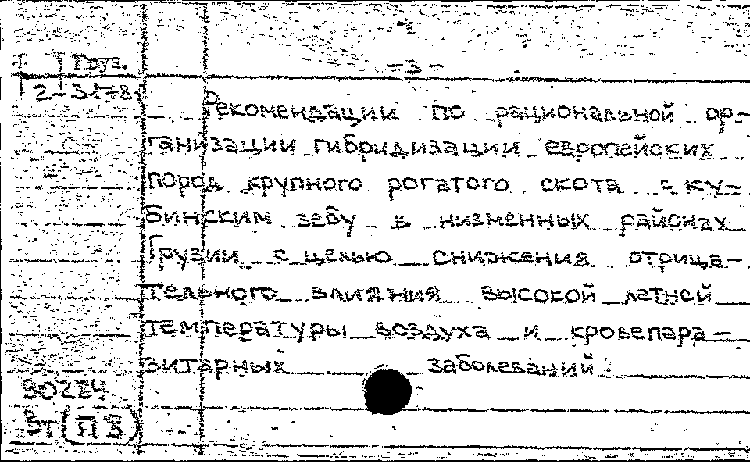 Груз.
-3-
Рекомендации по рациональной ор-
ганизации гибридизации европейских
пород крупного рогатого скота с ку-
бинским зебу в низменных районах
Грузии с целью снижения отрица-
тельного влияния высокой летней
температуры воздуха и кровепара-
зитарных заболеваний.
30224
Вт(ПЗ)